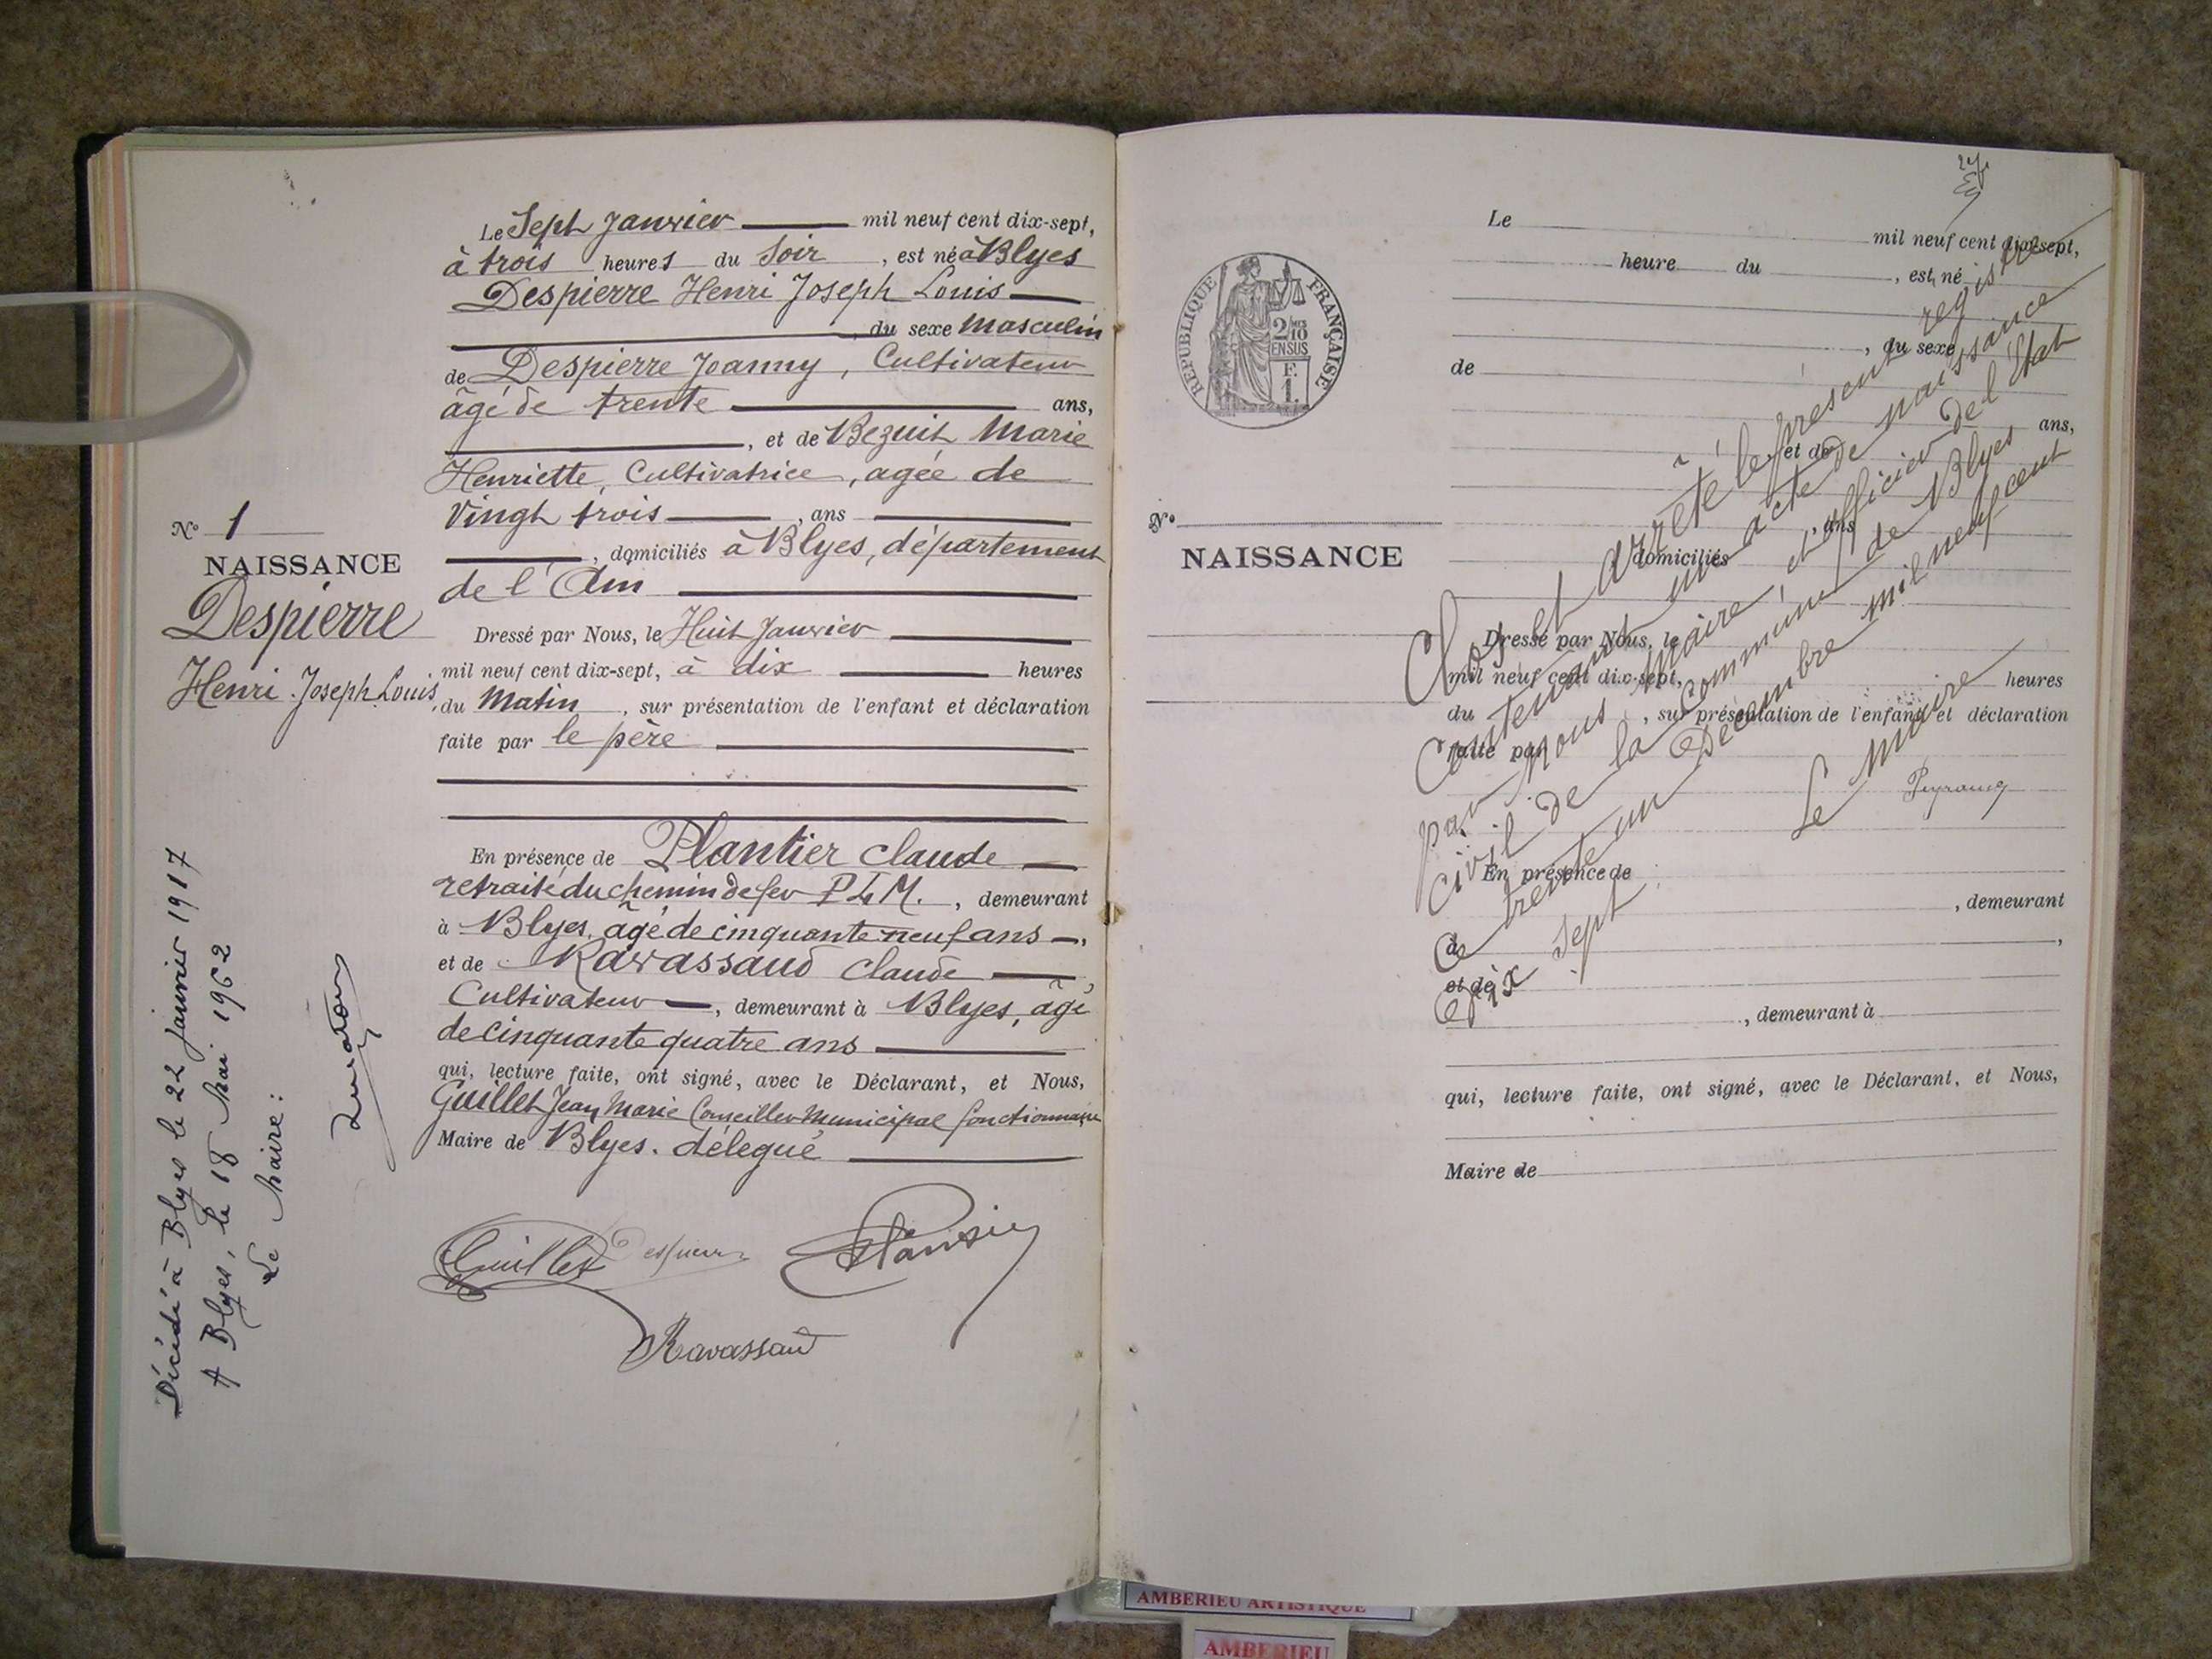 Le Sept Janvier mil neuf cent dix-sept,
à trois heures du Soir, est né à Blyes
Despierre Henri Joseph Louis
, du sexe Masculin
de Despierre Joanny, Cultivateur
âgé de trente ans,
, et de Bezuit Marie
Henriette, Cultivatrice, agée de
Vingt trois, ans
, domiciliés à Blyes, département
de l'Ain
Dressé par Nous, le Huit Janvier
mil neuf cent dix-sept, à dix heures
du Matin, sur présentation de l'enfant et déclaration
faite par le père
En présence de Plantier Claude
retraité du chemin de fer P L M., demeurant
à Blyes, âgé de cinquante neuf ans,
et de Ravassaud Claude
Cultivateur, demeurant à Blyes, âgé
de cinquante quatre ans
qui, lecture faite, ont signé, avec le Déclarant, et Nous,
Guillet Jean Marie Conseiller Municipal fonctionnaire
Maire de Blyes. délegué
Guillet Despierre Plantier
Ravassaud
N° 1
NAISSANCE
Despierre
Henri Joseph Louis
Décédé à Blyes le 22 Janvier 1917
A Blyes, le 18 Mai 1962
Le Maire:
RÉPUBLIQUE FRANÇAISE
2/10 MES
EN SUS
F.
1.
N°
NAISSANCE
Le mil neuf cent dix-sept,
heure du , est né
, du sexe
de
ans,
, et de
, ans
, domiciliés
Dressé par Nous, le
mil neuf cent dix-sept, heures
du , sur présentation de l'enfant et déclaration
faite par
En présence de
, demeurant
à ,
et de
, demeurant à
qui, lecture faite, ont signé, avec le Déclarant, et Nous,
Maire de
Clos et arrêté le présent registre
Contenant un acte de naissance
par nous Maire, et officier de l'Etat
civil de la Commune de Blyes
Ce trente un Décembre mil neuf cent
Dix Sept
Le Maire
AMBERIEU ARTISTIQUE
AMBERIEU